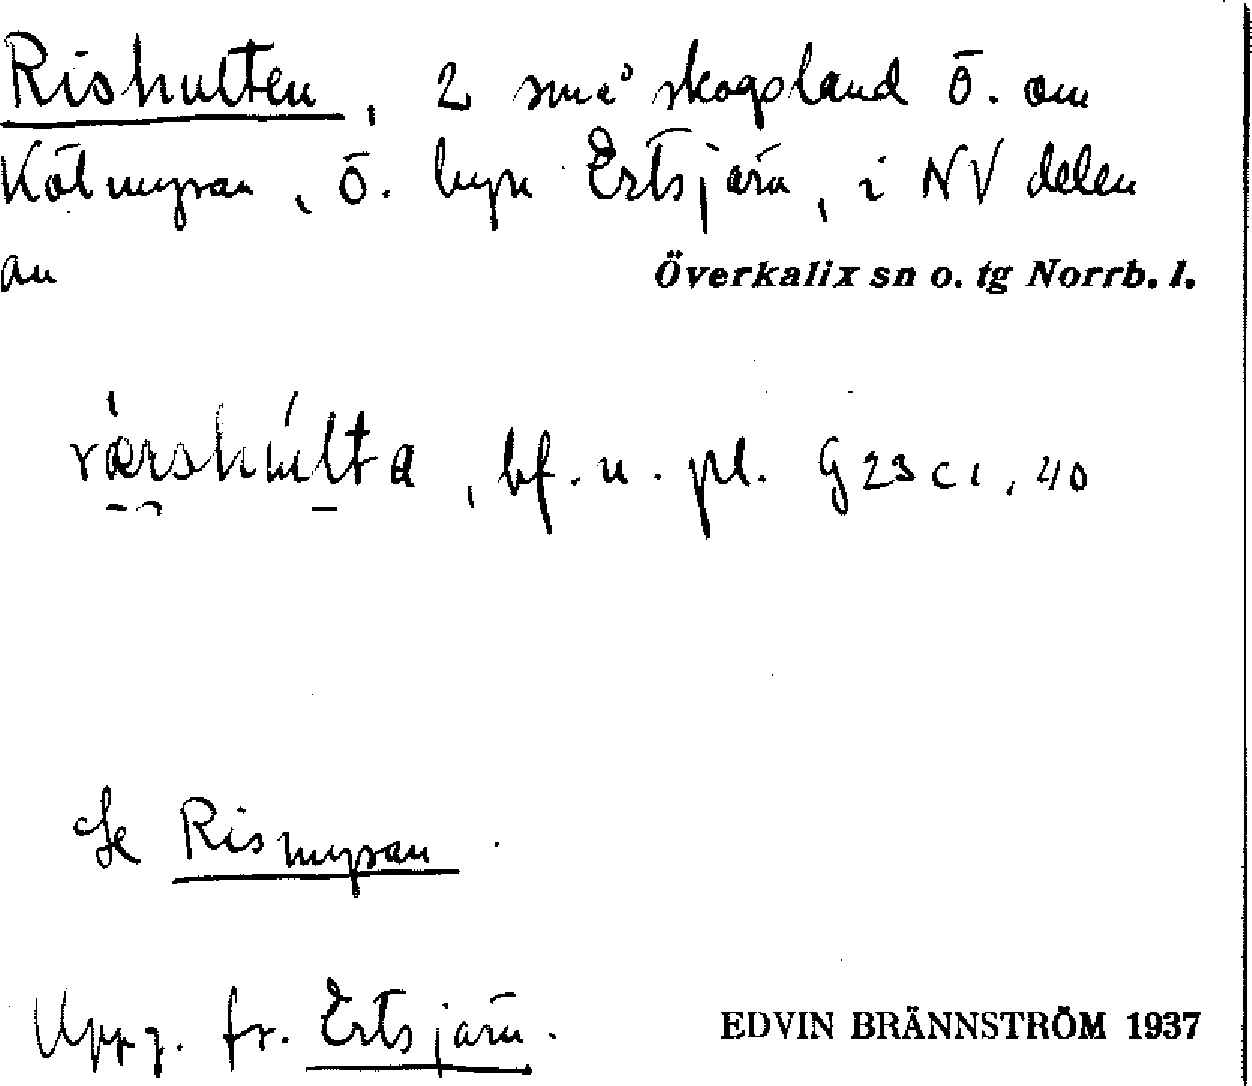 Rishulten, 2 små skogsland Ö. om
Kölmyran, Ö. byn Ertsjärn, i NV delen
av Överkalix sn o. tg Norrb. l.
värshulta, bf. u. pl. G 23 c 1, 40
Se Rismyran.
Uppg. fr. Ertsjärn.
EDVIN BRÄNNSTRÖM 1937